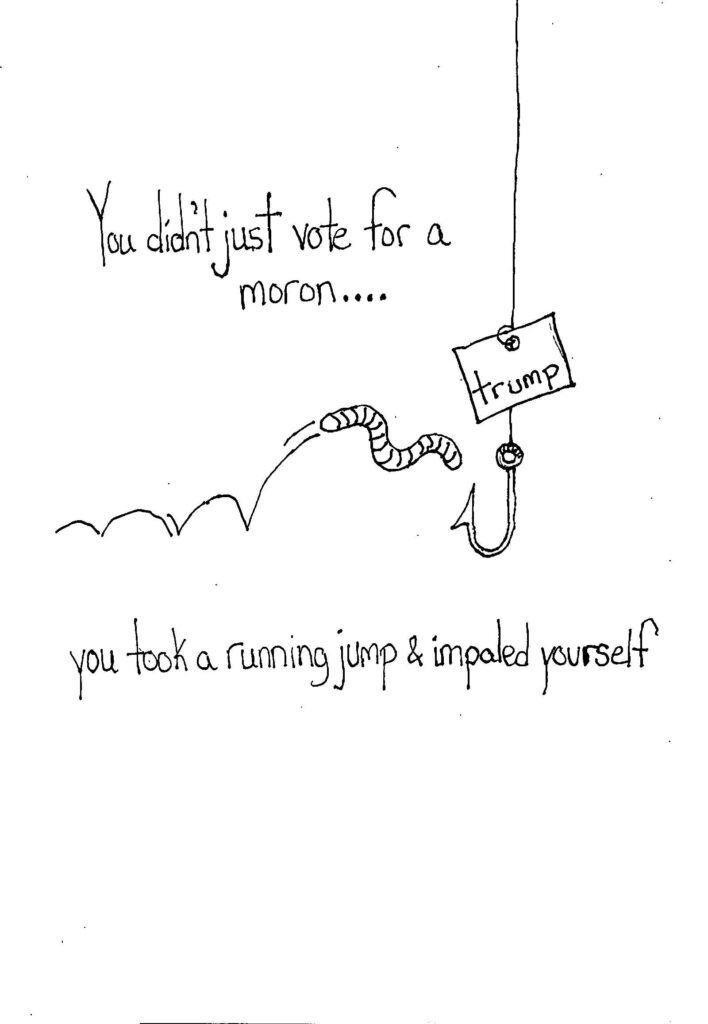 You didn't just vote for a
moron....
trump
you took a running jump & impaled yourself